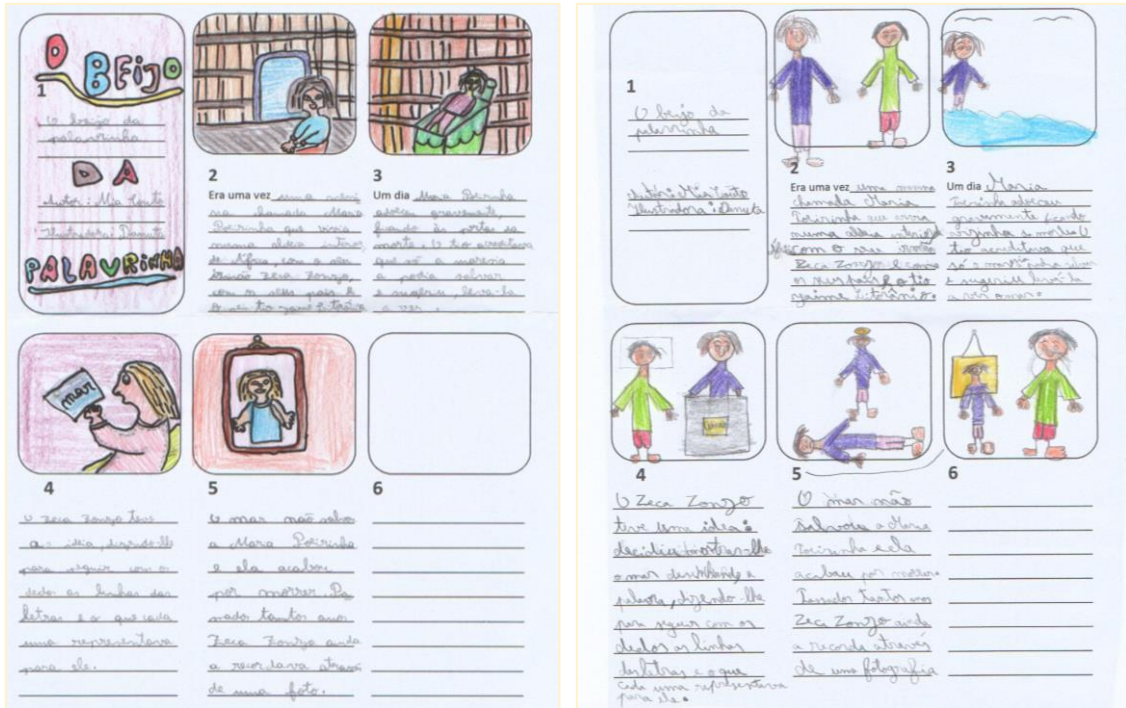 O BEIJO
1
O beijo da
palavrinha
DA
Autor: Mia Couto
Ilustradora: Danuta
PALAVRINHA
2
Era uma vez uma meni
na chamada Mara
Poeirinha que vivia
numa aldeia interior
de África, com o seu
irmão Zeca Zonzo,
com os seus pais e
o seu tio Jaime Litorânio
3
Um dia Mara Poeirinha
adoeceu gravemente,
ficando às portas da
morte. O tio acreditava
que só a maresia
a podia salvar
e sugeriu, levá-la
a ver
4
O Zeca Zonzo teve
a ideia, dizendo-lhe
para seguir com os
dedos as linhas das
letras e o que cada
uma representava
para ele.
5
O mar não salvou
a Mara Poeirinha
e ela acabou
por morrer. Pa
ssados tantos anos
Zeca Zonzo ainda
a recordava através
de uma foto.
mar
6
1
O beijo da
palavrinha
Autor: Mia Couto
Ilustradora: Danuta
2
Era uma vez uma menina
chamada Maria
Poeirinha que vivia
numa aldeia interior de
África com o seu irmão
Zeca Zonzo e com
os seus pais e o tio
Jaime Litorânio.
3
Um dia Maria
Poeirinha adoeceu
gravemente ficando
O
tio acreditava que
só o
e sugeriu levá-la
a ver o mar.
4
O Zeca Zonzo
teve uma ideia:
decidiu mostrar-lhe
o mar desenhando a
palavra, dizendo-lhe
para seguir com os
dedos as linhas
das letras e o que
cada uma representava
para ele.
5
O mar não
salvou a Maria
Poeirinha e ela
acabou por morrer.
Passados tantos anos
Zeca Zonzo ainda
a recorda através
de uma fotografia
6